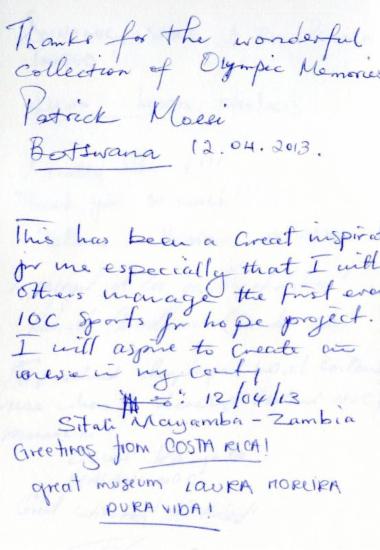 Thanks for the wonderful
collection of Olympic Memories
Patrick Moesi
Botswana 12.04.2013.
This has been a Great inspira
for me especially that I with
others manage the first ever
IOC Sports for hope project.
I will aspire to create an
in my
12/04/13
Sitali Mayamba - Zambia
Greetings from COSTA RICA!
great museum LAURA MOREIRA
PURA VIDA!